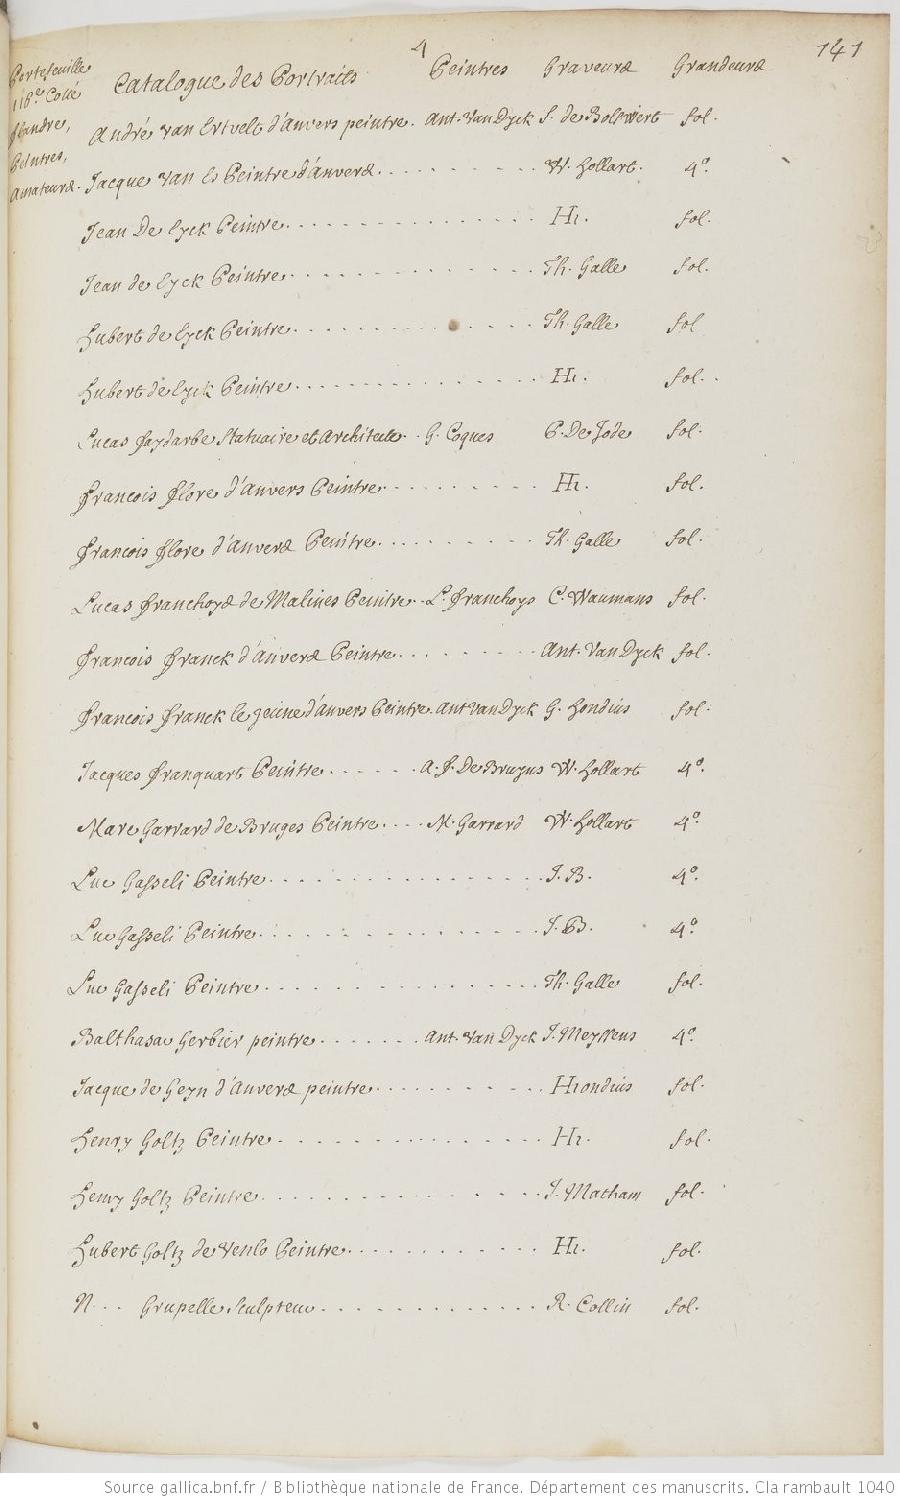 4
141
Portefeuille
116.e Cotté
flandre,
Peintres,
Amateurs.
Catalogue des Portraits Peintres Graveurs Grandeurs
André van Ertvelt d'Anvers peintre. Ant. Van Dyck S. de Bolswert fol.
Jacque van Es Peintre d'anvers. W. Hollart. 4.o
Jean De Eyck Peintre. H1. fol.
Jean de Eyck Peintre. Th. Galle fol.
Hubert de Eyck Peintre. Th. Galle fol
Hubert de Eyck Peintre. H1. fol.
Lucas faydarbe Statuaire et Architecte. G. Coques P. De Jode fol.
francois flore d'anvers Peintre. H1. fol.
francois flore d'anvers Peintre. Th. Galle fol.
Lucas franchoys de Malines Peintre. L. franchoys C. Waumans fol.
francois franck d'anvers Peintre. Ant. Van Dyck fol.
francois franck le jeune d'anvers Peintre. Ant van Dyck G. Hondius fol.
Jacques franquart Peintre. A. f. De Bruyns W. Hollart 4.o
Marc Garrard de Bruges Peintre. M. Garrard W. Hollart 4.o
Luc Gasseli Peintre. J. B. 4.o
Luc Gasseli Peintre. J. B. 4.o
Luc Gasseli Peintre. Th. Galle fol.
Balthasar Gerbier peintre. Ant. Van Dyck J. Meyssens 4.o
Jacque de Geyn d'anvers peintre. H1ondius fol.
Henry Goltz Peintre. H1. fol.
Henry Goltz Peintre. J. Matham fol.
Hubert Goltz de Venlo Peintre. H1. fol.
N... Grupelle Sculpteur. R. Collin fol.
Source gallica.bnf.fr / Bibliothèque nationale de France. Département des manuscrits. Clairambault 1040